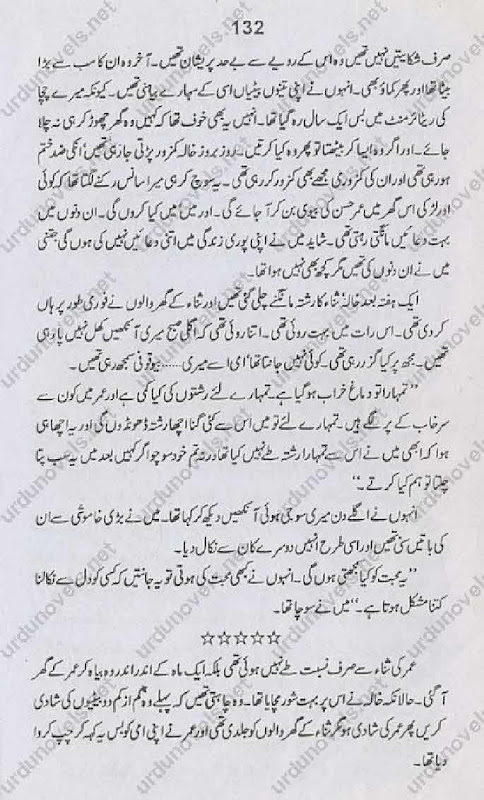 132
صرف شکایتیں نہیں تھیں وہ اس کے رویے سے بے حد پریشان تھیں۔ آخر وہ ان کا سب سے بڑا
بیٹا تھا اور پھر کماؤ بھی۔ انہوں نے اپنی تینوں بیٹیاں اسی کے سہارے بیاہنی تھیں۔ کیونکہ میرے چچا
کی ریٹائرمنٹ میں بس ایک سال رہ گیا تھا۔ انہیں یہ بھی خوف تھا کہ کہیں وہ گھر چھوڑ کر ہی نہ چلا
جائے۔ اور اگر وہ ایسا کر بیٹھتا تو پھر وہ کیا کرتیں۔ روز بروز خالہ کمزور پڑتی جا رہی تھیں' انکی ضد ختم
ہو رہی تھی اور ان کی کمزوری مجھے بھی کمزور کر رہی تھی۔ یہ سوچ کر ہی میرا سانس رکنے لگتا تھا کہ کوئی
اور لڑکی اس گھر میں عمر حسن کی بیوی بن کر آ جائے گی۔ اور میں' میں کیا کروں گی۔ ان دنوں میں
بہت دعائیں مانگتی رہتی تھی۔ شاید میں نے اپنی پوری زندگی میں اتنی دعائیں نہیں کی ہوں گی جتنی
میں نے ان دنوں کی تھیں مگر کچھ بھی نہیں ہوا تھا۔
ایک ہفتہ بعد خالہ' ثناء کا رشتہ مانگنے چلی گئی تھیں اور ثناء کے گھر والوں نے فوری طور پر ہاں
کر دی تھی۔ اس رات میں بہت روئی تھی۔ اتنا روئی تھی کہ اگلی صبح میری آنکھیں کھل نہیں پا رہی
تھیں۔ مجھ پر کیا گزر رہی تھی۔ کوئی نہیں جانتا تھا' امی اسے میری ...... بیوقوفی سمجھ رہی تھیں۔
”تمہارا تو دماغ خراب ہو گیا ہے۔ تمہارے لئے رشتوں کی کیا کمی ہے اور عمر میں کون سے
سرخاب کے پر لگے ہیں۔ تمہارے لئے تو میں اس سے کئی گنا اچھا رشتہ ڈھونڈوں گی اور یہ اچھا ہی
ہوا کہ ابھی میں نے اس سے تمہارا رشتہ طے نہیں کیا تھا ورنہ تم خود سوچو اگر کہیں بعد میں یہ سب پتا
چلتا تو ہم کیا کرتے۔“
انہوں نے اگلے دن میری سوجی ہوئی آنکھیں دیکھ کر کہا تھا۔ میں نے بڑی خاموشی سے ان
کی باتیں سنی تھیں اور اسی طرح انہیں دوسرے کان سے نکال دیا۔
”یہ محبت کو کیا سمجھتی ہوں گی۔ انہوں نے بھی محبت کی ہوتی تو یہ جانتیں کہ کسی کو دل سے نکالنا
کتنا مشکل ہوتا ہے۔“ میں نے سوچا تھا۔
☆☆☆☆☆
عمر کی ثناء سے صرف نسبت طے نہیں ہوئی تھی بلکہ ایک ماہ کے اندر اندر وہ بیاہ کر عمر کے گھر
آ گئی۔ حالانکہ خالہ نے اس پر بہت شور مچایا تھا۔ وہ چاہتی تھیں کہ پہلے وہ کم از کم دو بیٹیوں کی شادی
کریں پھر عمر کی شادی ہو مگر ثناء کے گھر والوں کو جلدی تھی اور عمر نے اپنی امی کو بس یہ کہہ کر چپ کروا
دیا تھا۔
urdunovels.net